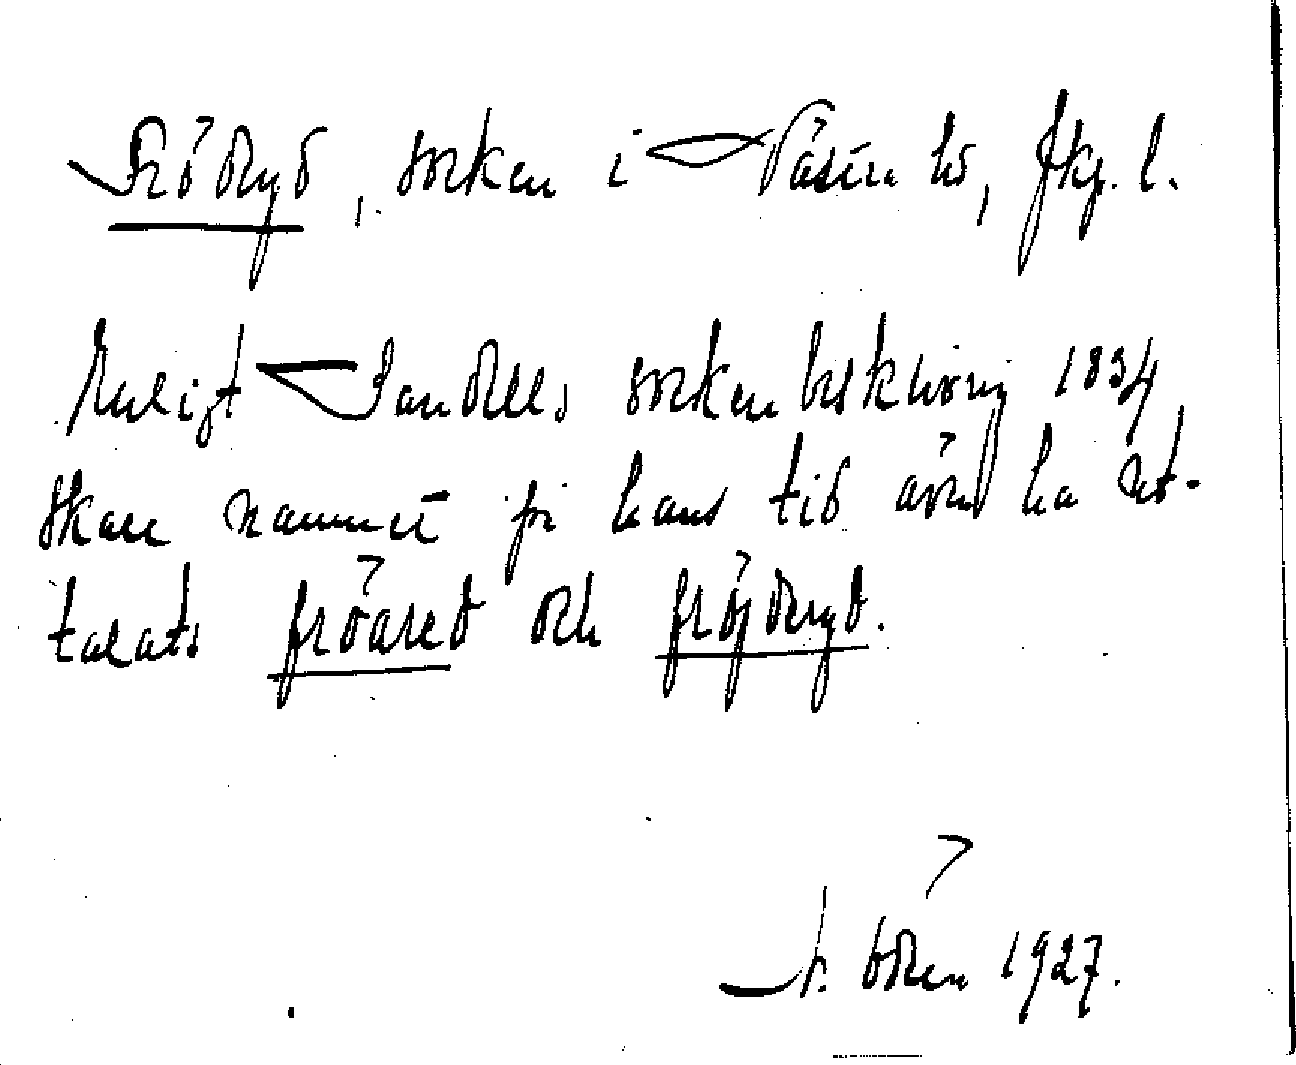 Fröderyd, socken i Västra hd, Jkp. l.
Enligt Sandells sockenbeskrivning 1834
skall namnet på hans tid även ha ut-
talats fröared och fröjderyd.
N. Ödeen 1927.